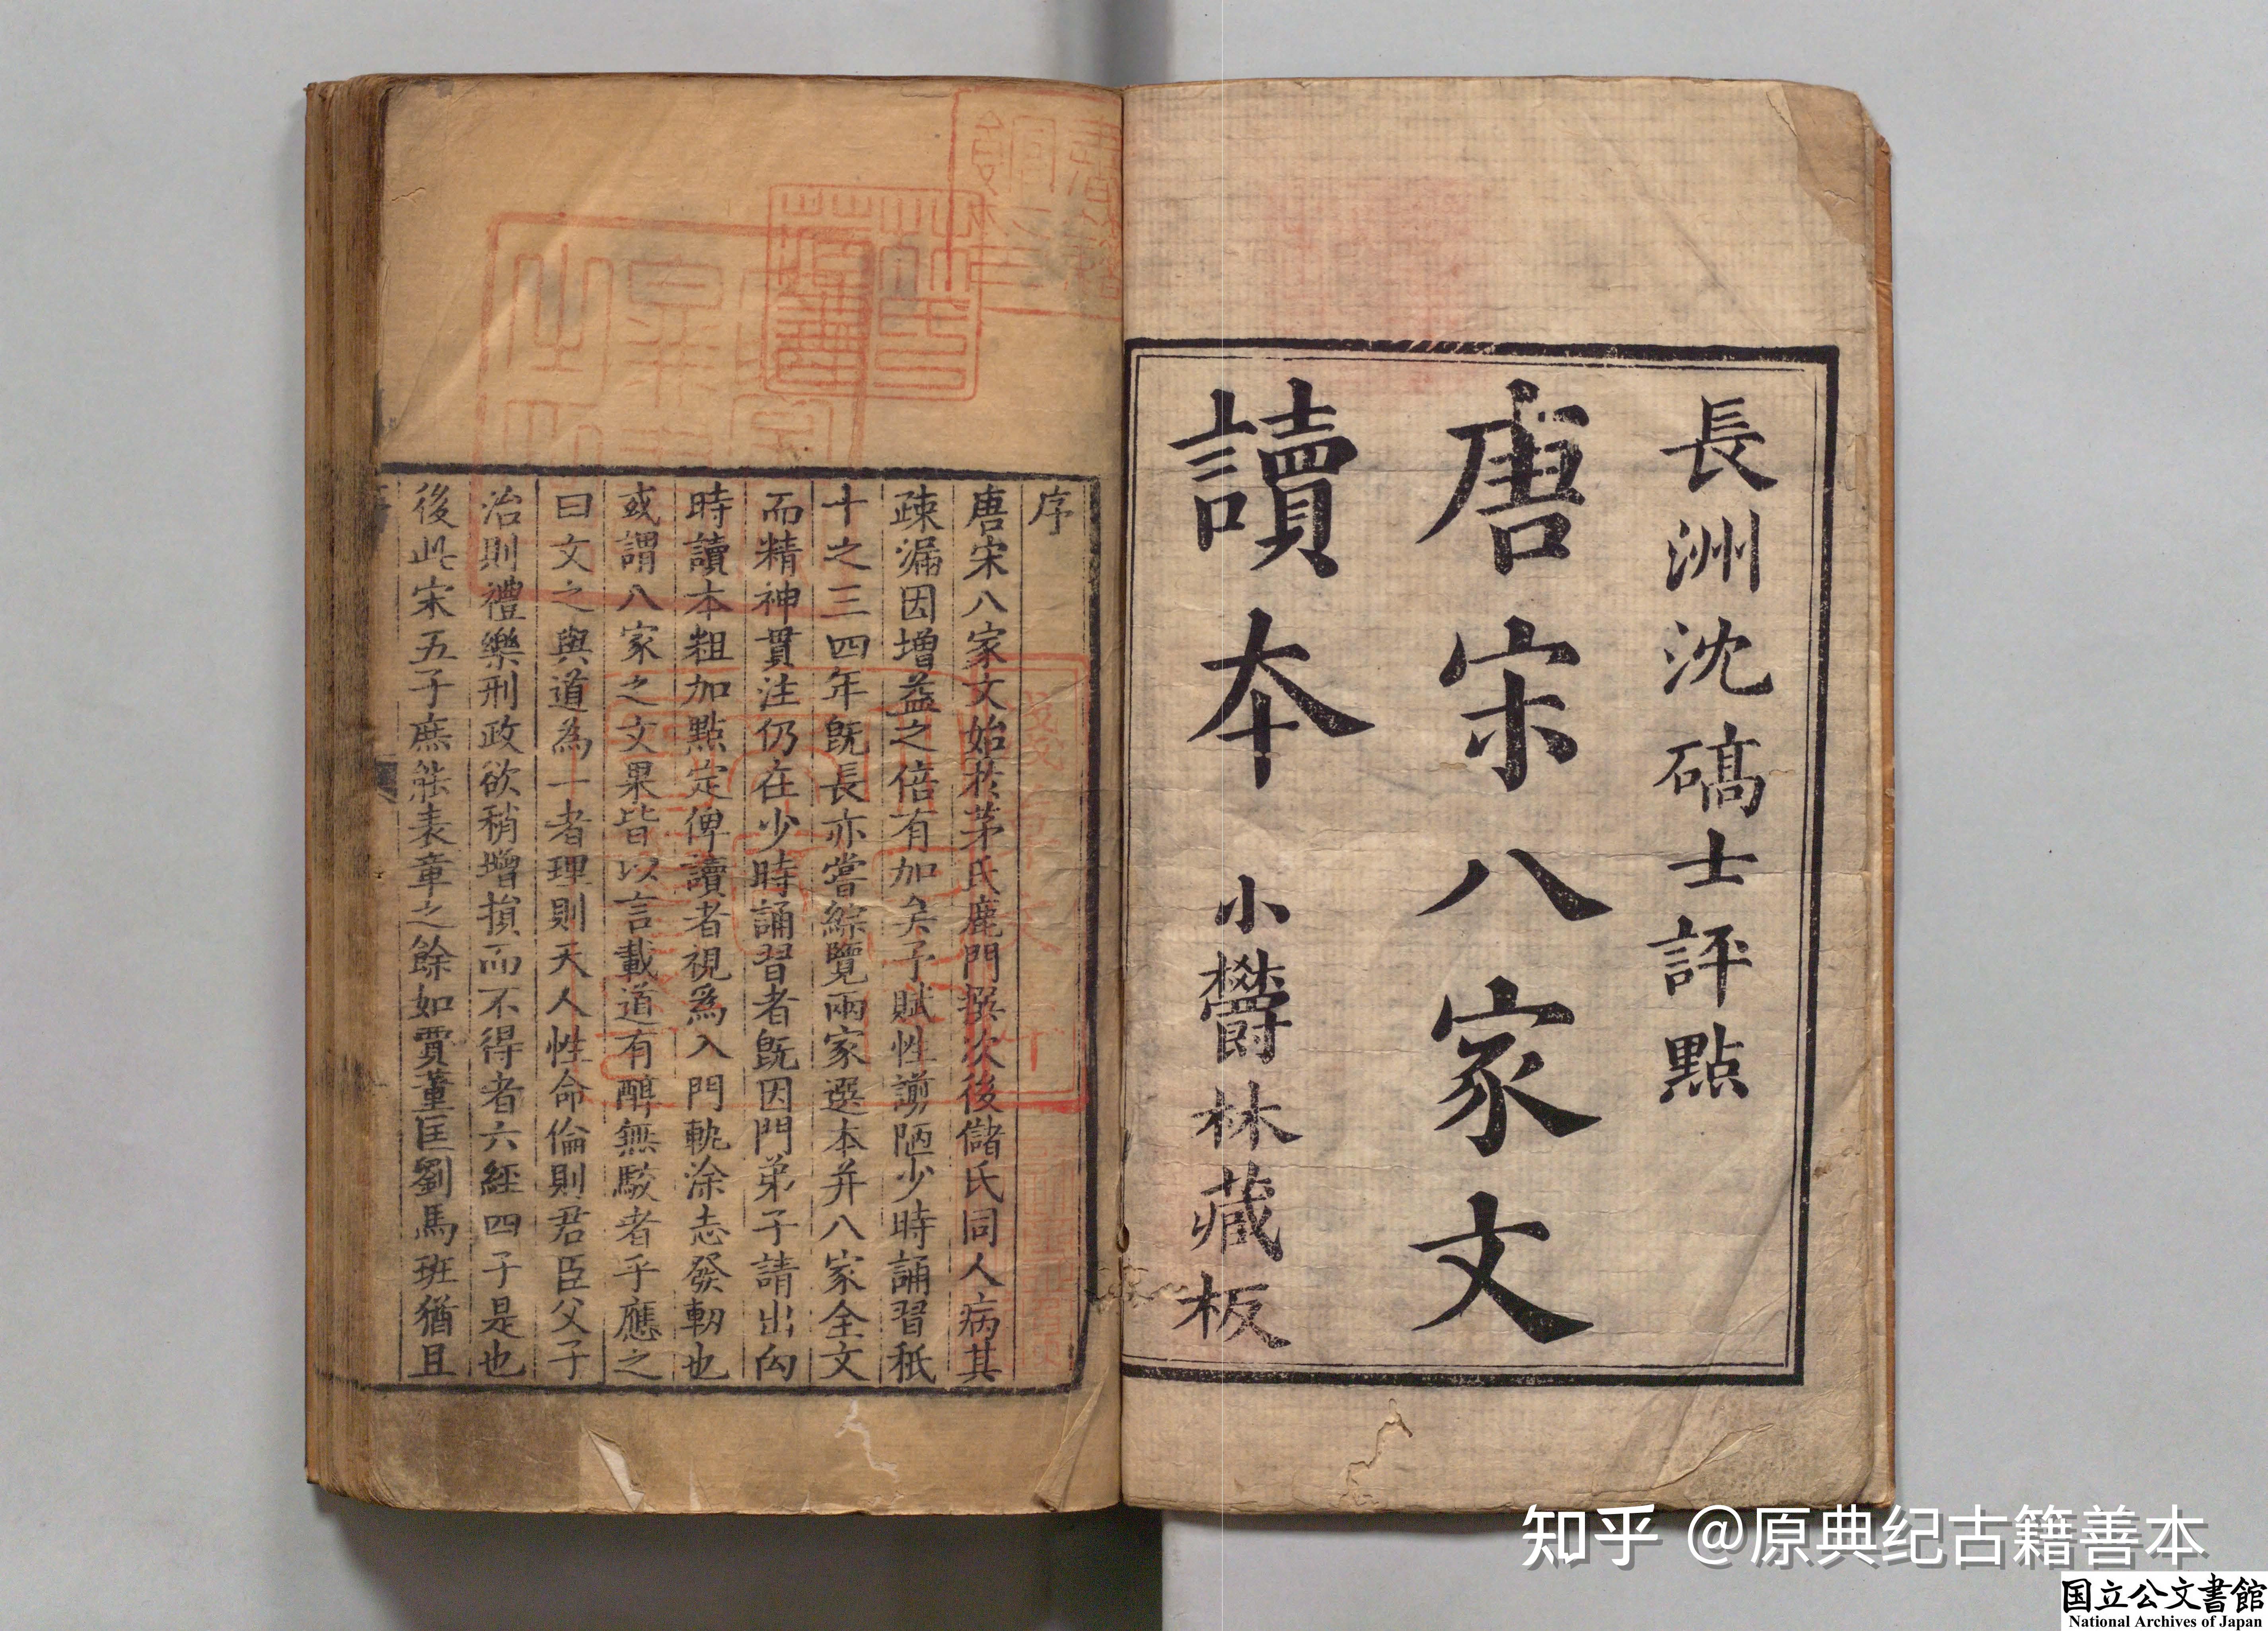 長洲沈碻士評點
唐宋八家文
讀本
小欝林藏板
序
唐宋八家文始於茅氏鹿門撰次後儲氏同人病其
疎漏因增益之倍有加矣予賦性謭陋少時誦習秖
十之三四年旣長亦嘗綜覽兩家選本并八家全文
而精神貫注仍在少時誦習者旣因門弟子請出向
時讀本粗加點定俾讀者視爲入門軌涂志發軔也
或謂八家之文果皆以言載道有醇無駁者乎應之
曰文之與道為一者理則天人性命倫則君臣父子
治則禮樂刑政欲稍增損而不得者六經四子是也
後此宋五子庶能表章之餘如賈董匡劉馬班猶且
知乎 @原典纪古籍善本
国立公文書館
National Archives of Japan